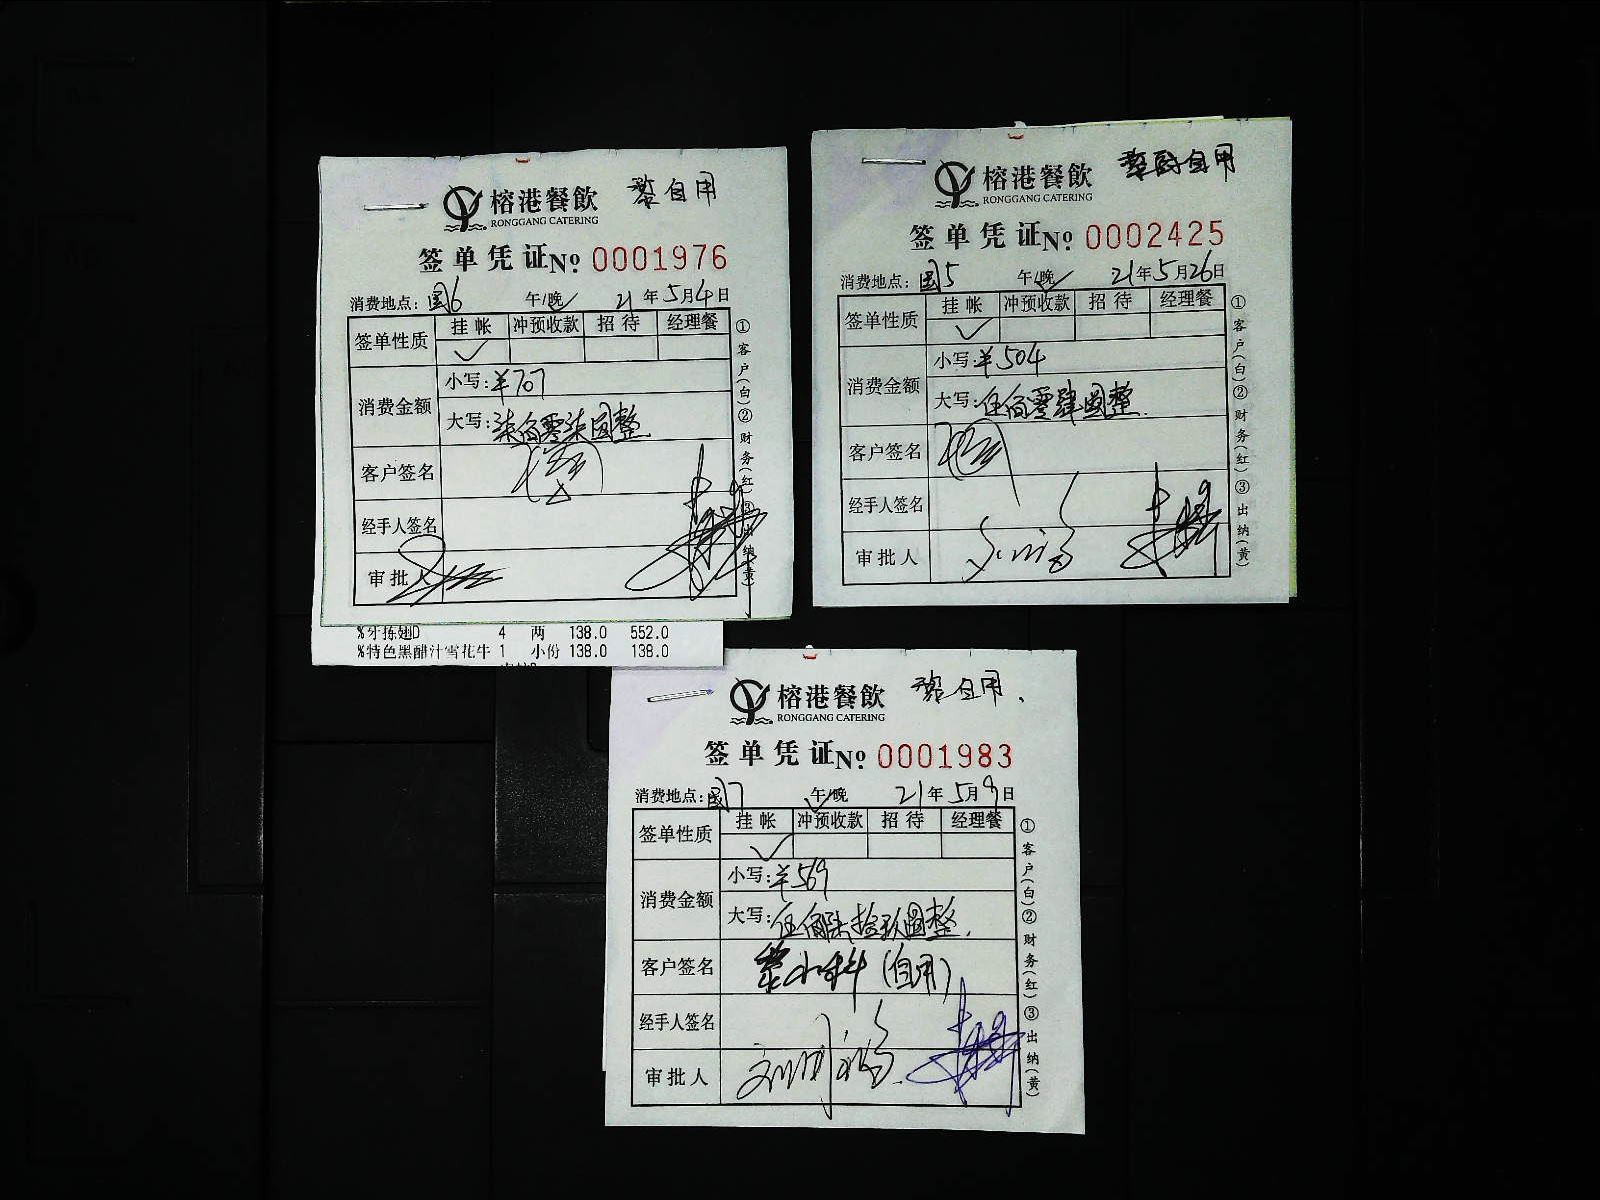 榕港餐飲
黎自用
RONGGANG CATERING
签单凭证№ 0001976
消费地点：国6 午/晚✓ 21年5月4日
签单性质 挂帐 冲预收款 招待 经理餐
✓
消费金额
小写：¥707
大写：柒佰零柒圆整
客户签名
经手人签名
审批人
①客户(白)②财务(红)③出纳(黄)
%牙拣翅D 4 两 138.0 552.0
%特色黑醋汁雪花牛 1 小份 138.0 138.0
榕港餐飲
自用
RONGGANG CATERING
签单凭证№ 0002425
消费地点：国5 午/晚✓ 21年5月26日
签单性质 挂帐 冲预收款 招待 经理餐
✓
消费金额
小写：¥504
大写：伍佰零肆圆整.
客户签名
经手人签名
审批人
①客户(白)②财务(红)③出纳(黄)
榕港餐飲
黎自用.
RONGGANG CATERING
签单凭证№ 0001983
消费地点：国7 午✓/晚 21年5月9日
签单性质 挂帐 冲预收款 招待 经理餐
✓
消费金额
小写：¥569
大写：伍佰 拾玖圆整.
客户签名 (自用)
经手人签名
审批人
①客户(白)②财务(红)③出纳(黄)